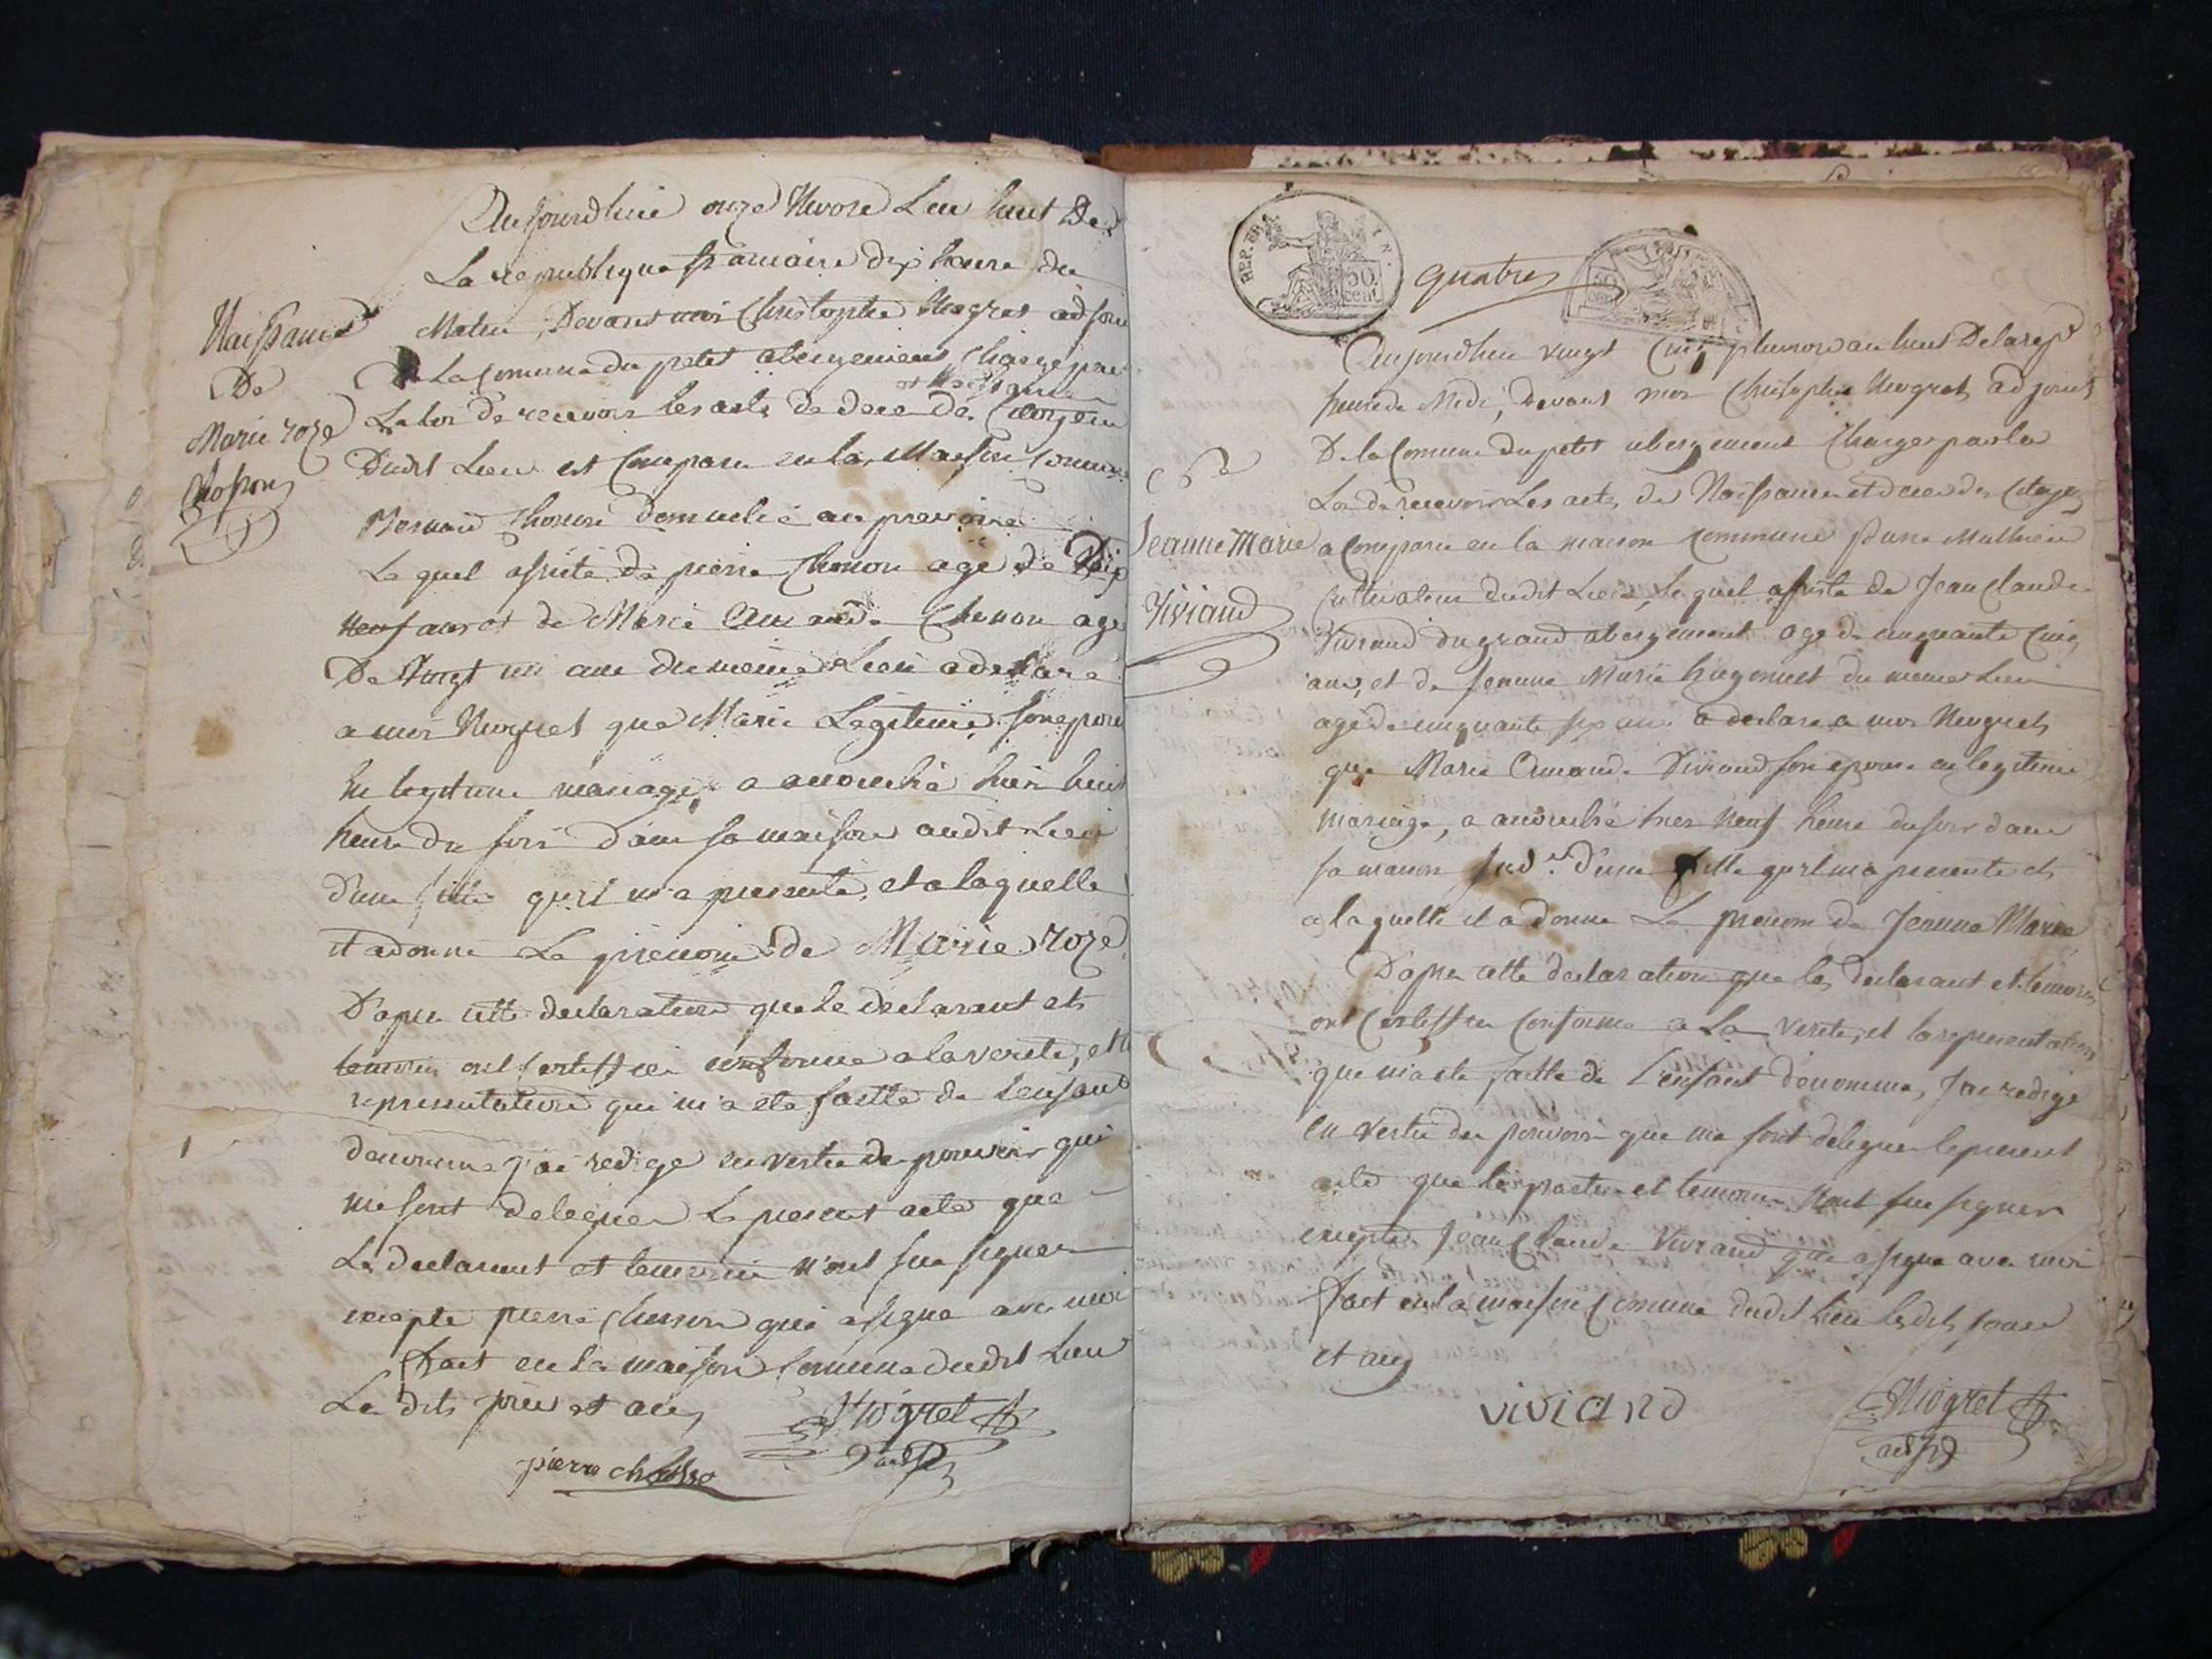 Aujourdhui onze Nivose L'an huit De
La republique francaise dix heure du
Matin, Devant moi Christophe Niogret adjoin
De La Comune du petit abergement Chargé par
et Naissance
La loi De recevoir les acts de dece des Citoyens
Dudit Lieu est Comparu en la Maison Comune
domicilié au
Le quel assisté de pierre Chosson agé de Dix
Neuf ans et de Marie Chosson agé
De Vingt un ans du meme Lieu a declaré
a moi Niogret que Marie Legitime son epouse
En legitime mariage, a accouché hier huit
heure du soir dans sa maison audit Lieu
d'une fille qu'il m'a presenté, et a laquelle
il a donné Le prenom de Marie roze
D'apres cette declaration que Le declarant et
temoins ont certiffié conforme a la verité, et la
representation qui m'a eté faitte de l'enfant
denommé j'ai redigé en vertu de pouvoir qui
me sont delegués Le present acte que
Le declarant et temoins n'ont su signer
excepté pierre Chosson qui a signé avec moi
Fait en la maison Comune dudit Lieu
Les dits jour et an
Niogret
adj
pierre chosso
Naissance
De
Marie roze
Chosson
REP. FRA
50.
cent
quatre
Aujourdhui vingt Cinq pluviose an huit De la rep
heure de Midi, Devant moi Christophe Niogret adjoint
De la Comune du petit abergement Chargé par la
Loi de recevoir Les acts de Naissance et dece des Citoyens
a Comparu en la maison Commune Mathieu
Cultivateur dudit Lieu, Lequel assisté de Jean Claude
Viviand du grand abergement agé de cinquante Cinq
ans, et de Jeanne Marie hugonnet du meme Lieu
agé de cinquante six ans a declaré a moi Niogret
que Marie Viviand son epouse en legitime
mariage, a accouché hier Neuf heure du soir dans
sa maison d'une fille qu'il m'a presenté et
a laquelle il a donné Le prenom de Jeanne Marie
D'apres cette declaration que les declarant et temoins
ont Certiffié Conforme a La verité, et la representation
qui m'a eté faitte de l'enfant denommé, J'ai redigé
en vertu des pouvoir que me sont delegués le present
acte que les parties et temoins N'ont su signer
excepté Jean Claude Viviand qui a signé avec moi
Fait en la maison Comune dudit Lieu les dits jour
et an
viviand
Niogret
adj
Jeanne Marie
Viviand